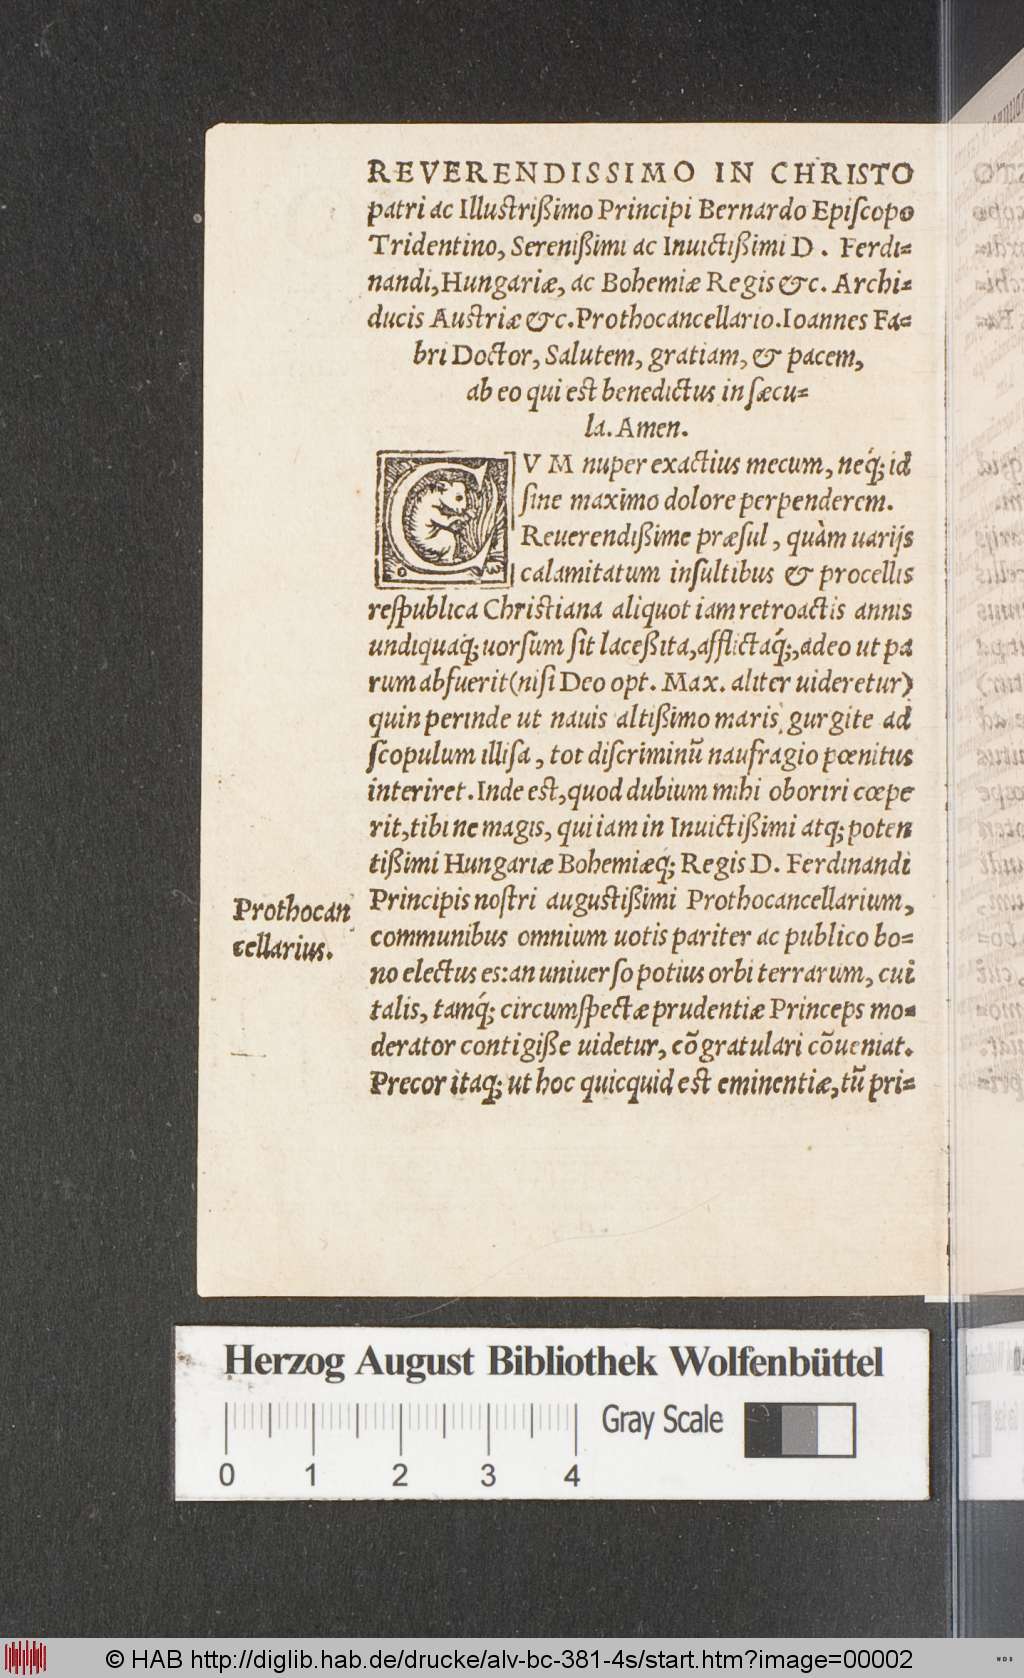 REVERENDISSIMO IN CHRISTO
patri ac Illustrißimo Principi Bernardo Epiſcopo
Tridentino, Serenißimi ac Inuictißimi D. Ferdi=
nandi, Hungariæ, ac Bohemiæ Regis &c. Archi=
ducis Austriæ &c. Prothocancellario. Ioannes Fa=
bri Doctor, Salutem, gratiam, & pacem,
ab eo qui est benedictus in ſæcu=
la. Amen.
CVM nuper exactius mecum, neq́; id
ſine maximo dolore perpenderem.
Reuerendißime præſul, quàm uarijs
calamitatum inſultibus & procellis
reſpublica Christiana aliquot iam retroactis annis
undiquaq; uorſum ſit laceßita, afflictaq́;, adeo ut pa
rum abfuerit (niſi Deo opt. Max. aliter uideretur)
quin perinde ut nauis altißimo maris gurgite ad
ſcopulum illiſa, tot diſcriminū naufragio pœnitus
interiret. Inde est, quod dubium mihi oboriri cœpe
rit, tibi ne magis, qui iam in Inuictißimi atq; poten
tißimi Hungariæ Bohemiæq́; Regis D. Ferdinandi
Principis noſtri augustißimi Prothocancellarium,
communibus omnium uotis pariter ac publico bo=
no electus es: an uniuerſo potius orbi terrarum, cui
talis, tamq́; circumſpectæ prudentiæ Princeps mo=
derator contigiße uidetur, cōgratulari cōueniat.
Precor itaq; ut hoc quicquid est eminentiæ, tū pri=
Prothocan
cellarius.
Herzog August Bibliothek Wolfenbüttel
Gray Scale
0 1 2 3 4
© HAB http://diglib.hab.de/drucke/alv-bc-381-4s/start.htm?image=00002